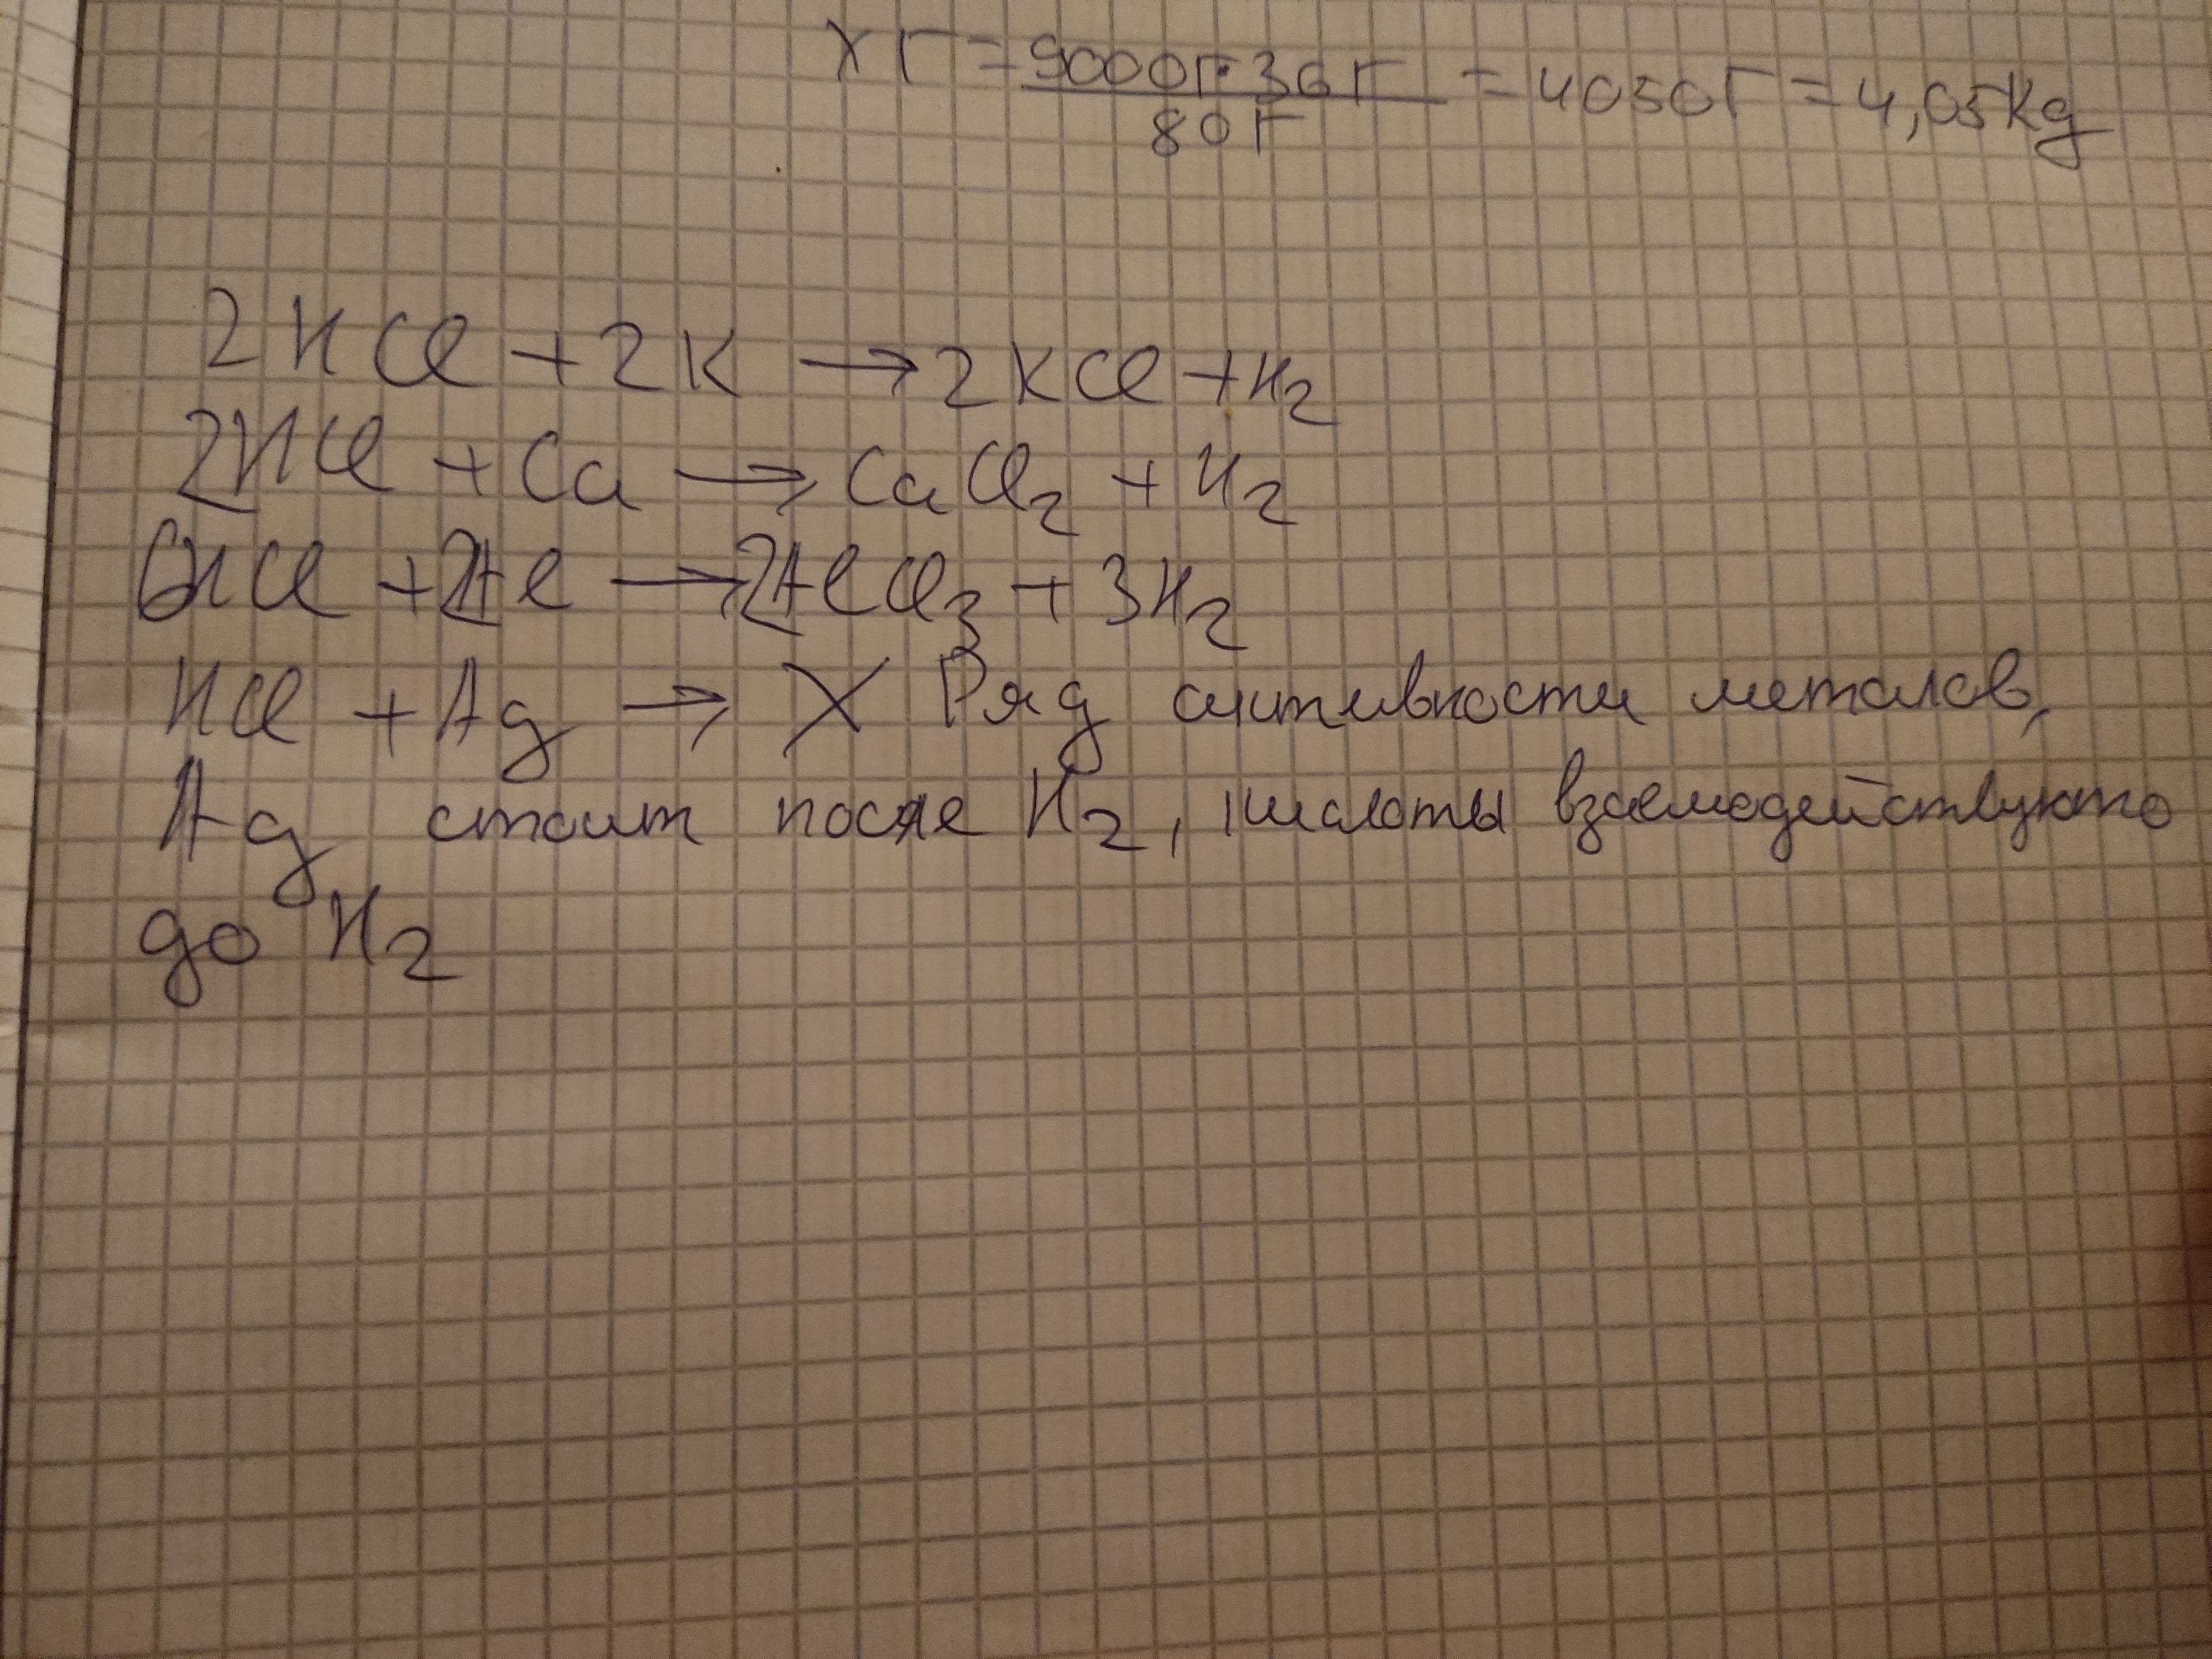 X г = 9000г·36г / 80г = 4050г = 4,05Kg
2HCl + 2K → 2KCl + H₂
2HCl + Ca → CaCl₂ + H₂
6HCl + 2Al → 2AlCl₃ + 3H₂
HCl + Ag → X Ряд активности металов,
Ag стоит после H₂, кислоты взаемодействуюто
до H₂